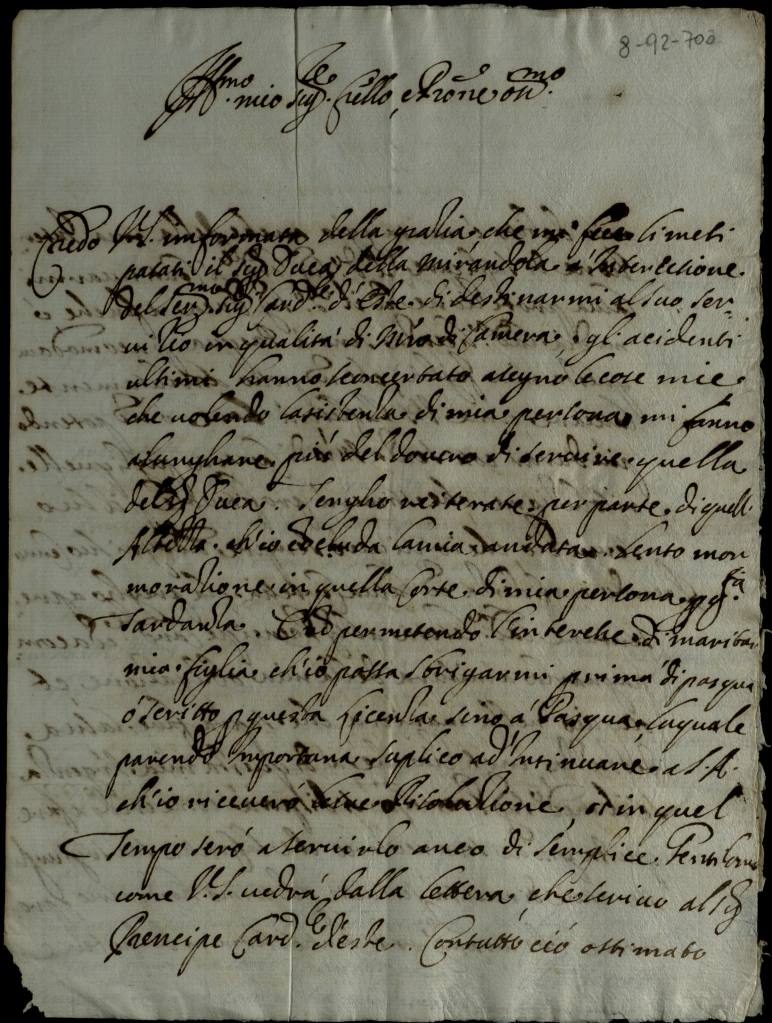 8-92-700
Ill.mo mio Sig.re e Prone oss.mo
Credo V.S. imformata della gratia che mi fece
il Sig. Duca della Mirandola a Intercetione
del Ser.mo Sig. Card.le d'Este di destinarmi al suo ser-
vitio in qualità di Mro di Camera, gl'acidenti
ultimi hanno sconcertato a segno le cose mie
che volendo l'asistenza di mia persona mi fanno
alunghare più del dovere di servire quella
del S. Duca. Tengho reiterate per parte di quell'
Altezza ch'io la mia andata. Sento mor-
moratione in quella Corte di mia persona p
tardanza. permetendo l'interesse di maritar
mia figlia ch'io possa sbrigarmi prima di pasqua
ò scritto p questa licenza sino à Pasqua, la quale
parendo Importuna suplico ad Insinuare a S.A.
ch'io riceverò Risolutione, et in quel
Tempo serò a servirlo anco di semplice Gentilomo
come V.S. vedrà dalla lettera che scrivo al Sig.
Prencipe Card.le d'Este. Contuttociò ostimato